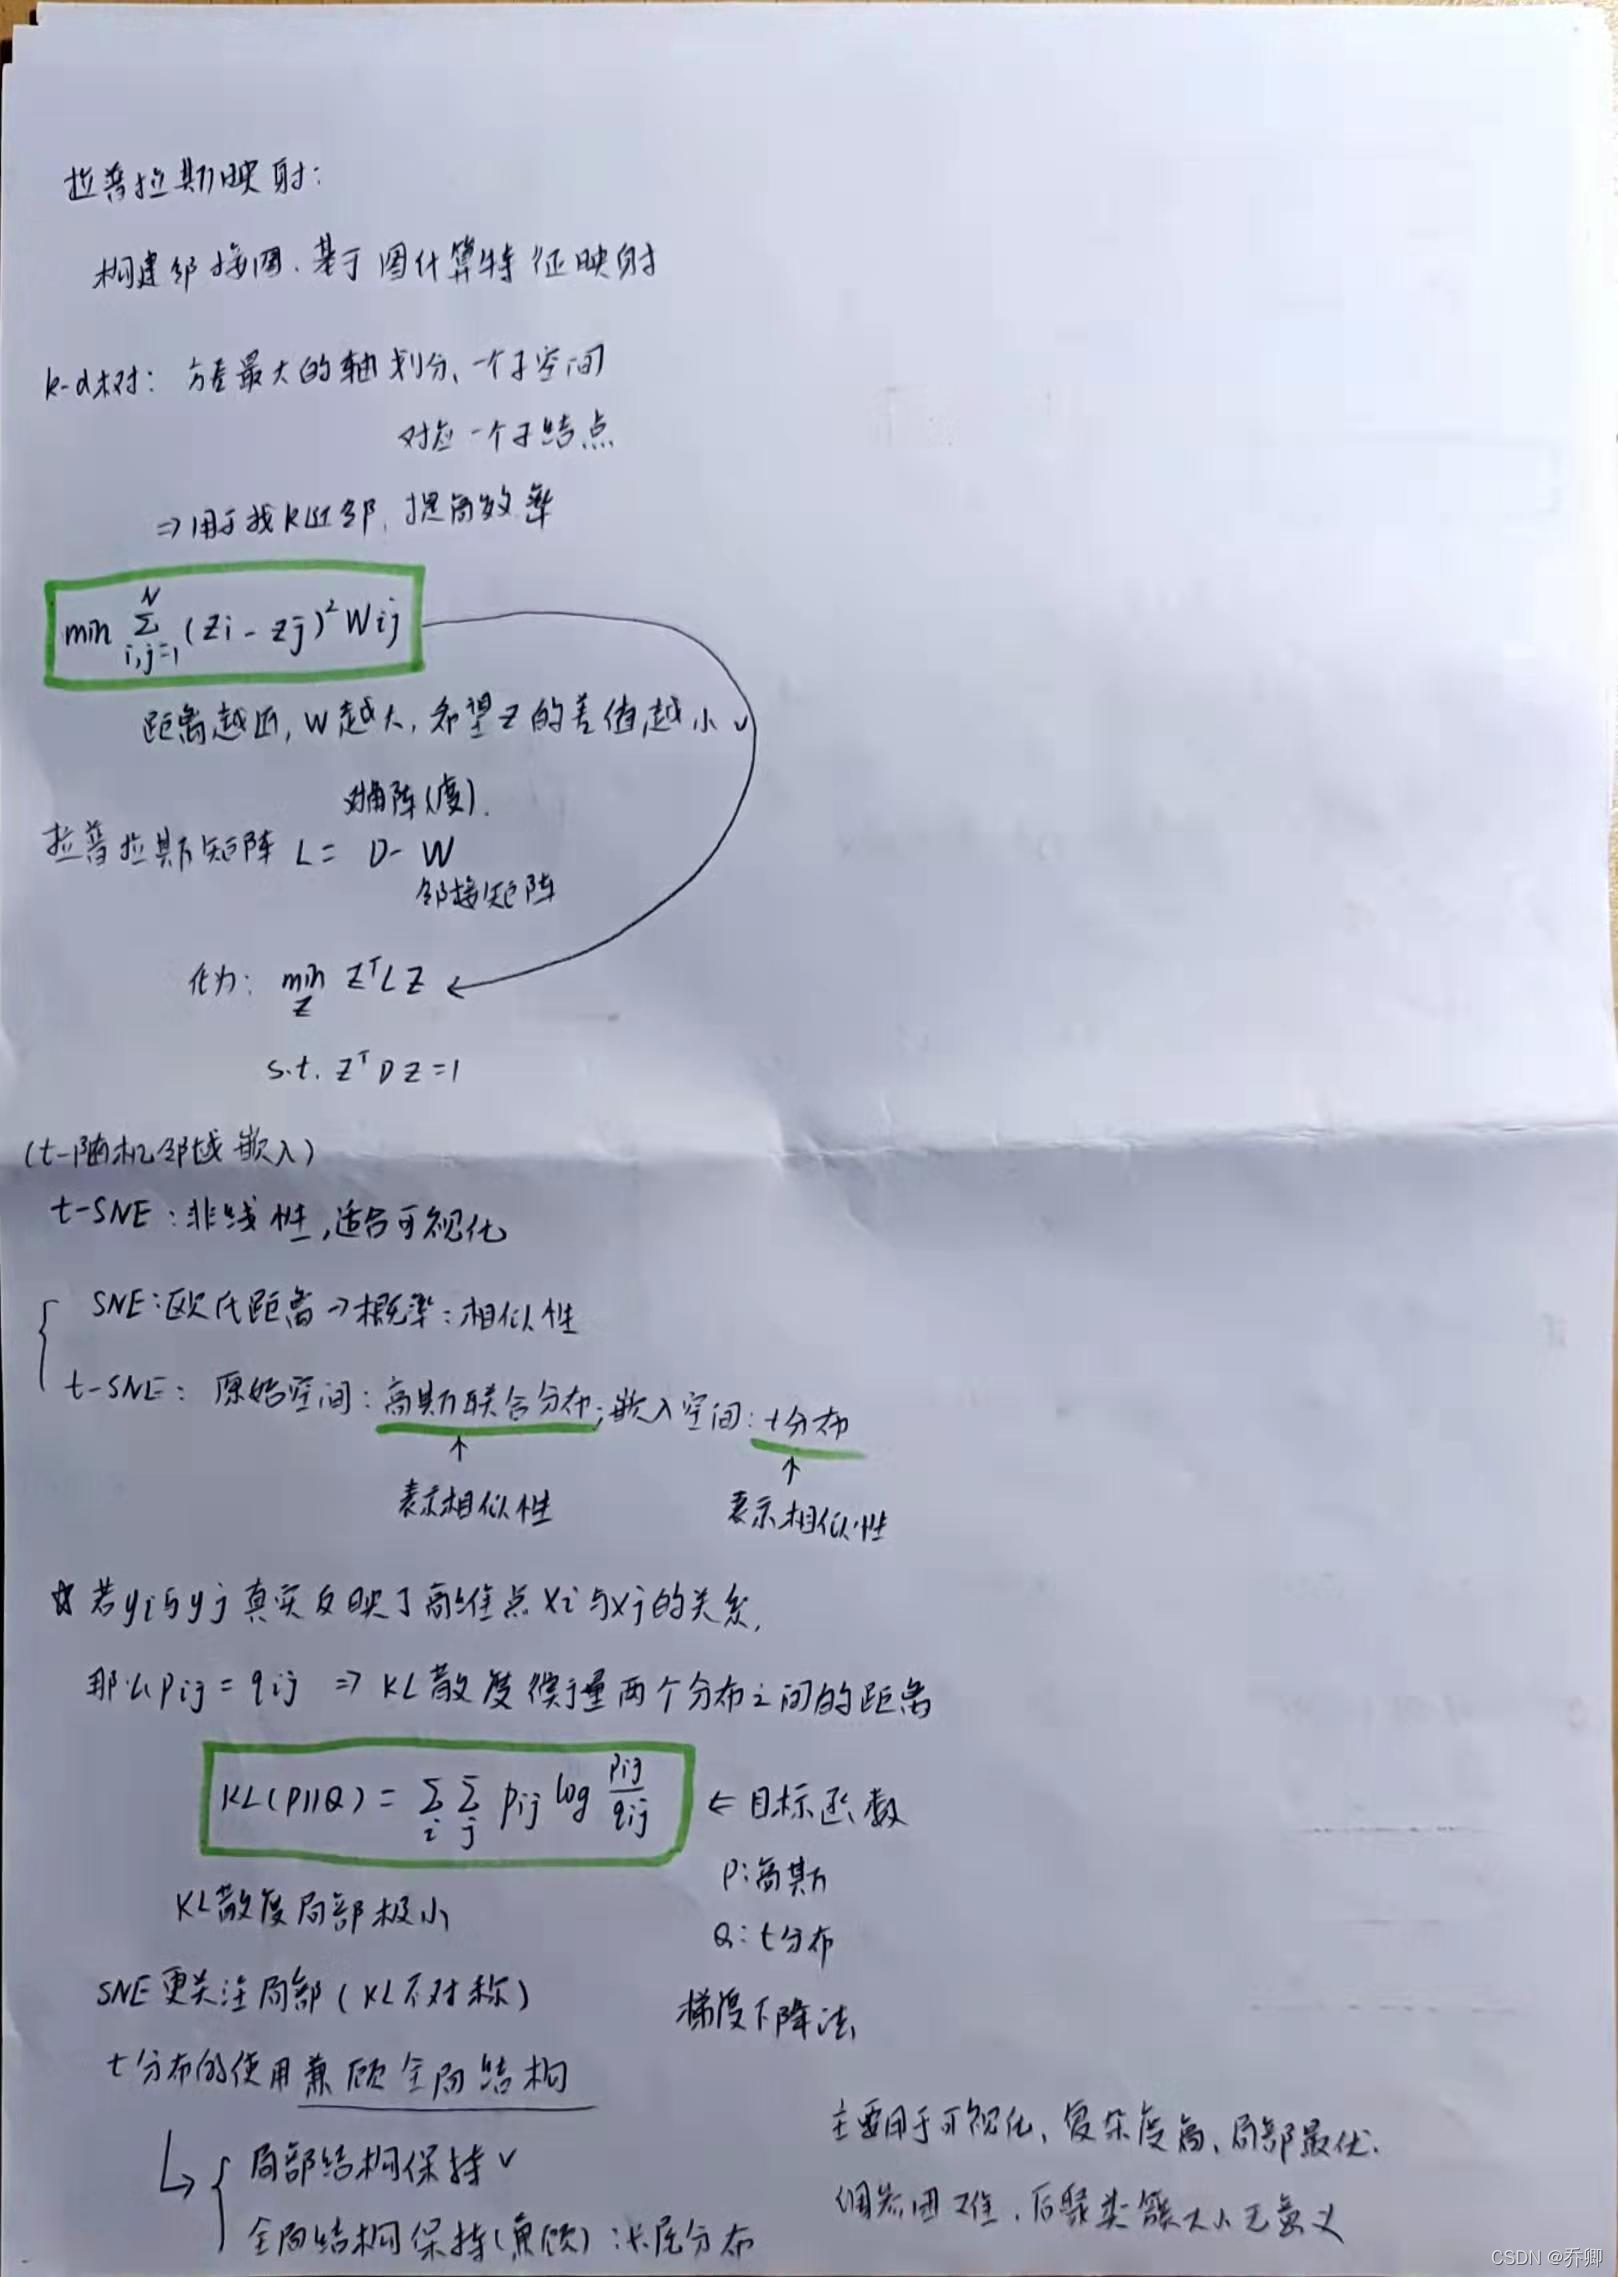 拉普拉斯映射:
构建邻接图、基于图计算特征映射
k-d树: 方差最大的轴划分、一个子空间
对应一个子结点
⇒用于找k近邻, 提高效率
min Σ_{i,j=1}^{N} (zi - zj)² Wij
距离越近, W越大, 希望z的差值越小 ✓
对角阵(度).
拉普拉斯矩阵 L = D - W
邻接矩阵
化为: min_z Z^T L Z
s.t. Z^T D Z = 1
(t-随机邻域嵌入)
t-SNE: 非线性, 适合可视化
SNE: 欧氏距离→概率: 相似性
t-SNE: 原始空间: 高斯联合分布; 嵌入空间: t分布
↑ ↑
表示相似性 表示相似性
☆ 若yi与yj真实反映了高维点xi与xj的关系,
那么pij = qij ⇒ KL散度衡量两个分布之间的距离
KL(P||Q) = Σ_i Σ_j pij log pij/qij ⇐ 目标函数
P: 高斯
KL散度局部极小
Q: t分布
SNE更关注局部(KL不对称)
梯度下降法
t分布的使用兼顾全局结构
主要用于可视化、复杂度高、局部最优.
局部结构保持 ✓
调参困难、后聚类簇大小无意义
全局结构保持(兼顾): 长尾分布
CSDN @乔卿